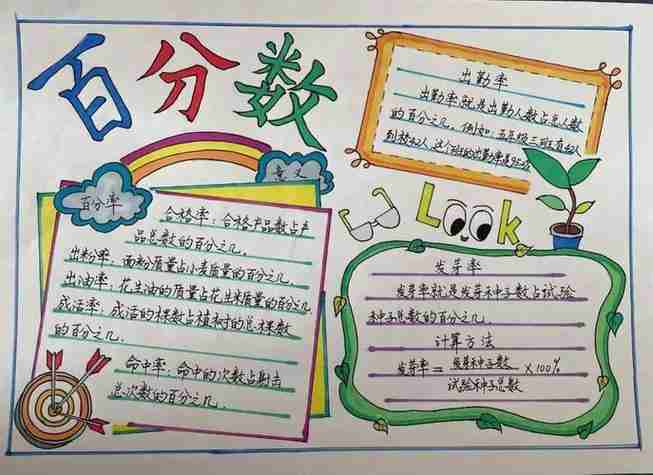 百分数
百分率
意义
合格率：合格产品数占产
品总数的百分之几。
出粉率：面粉质量占小麦质量的百分之几。
出油率：花生油的质量占花生米质量的百分之几
成活率：成活的棵数占植树的总棵数
的百分之几。
命中率：命中的次数占射击
总次数的百分之几。
出勤率
出勤率就是出勤人数占总人数
的百分之几。例如：五年级三班有
到校 人，这个班的出勤率是
Look
发芽率
发芽率就是发芽种子数占试验
种子总数的百分之几。
计算方法
发芽率＝发芽种子数×100%
试验种子总数